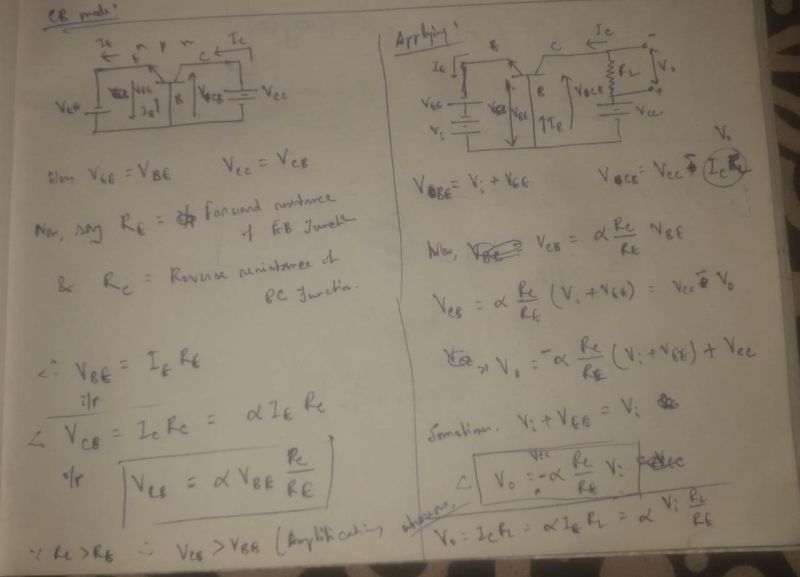 CB mode:
I_E n p n I_C
E C
V_BE I_B B V_CB V_CC
Now V_EE = V_BE V_CC = V_CB
Now, say R_E = Forward resistance
of EB Junction
& R_C = Reverse resistance of
BC Junction.
∴ V_BE = I_E R_E
i/p
∴ V_CB = I_C R_C = α I_E R_C
o/p
V_CB = α V_BE R_C/R_E
∵ R_C > R_E ∴ V_CB > V_BE (Amplification)
Applying:
E C I_C
I_E R_L V_o
V_EE V_BE B V_CB
V_i I_B V_CC
V_o
V_BE = V_i + V_EE V_CB = V_CC - I_C R_L
Now, V_CB = α R_C/R_E V_BE
V_CB = α R_C/R_E (V_i + V_EE) = V_CC - V_o
⇒ V_o = -α R_C/R_E (V_i + V_EE) + V_CC
Sometimes. V_i + V_EE = V_i
∴ V_o = V_CC - α R_C/R_E V_i
V_o = I_C R_L = α I_E R_L = α V_i R_L/R_E